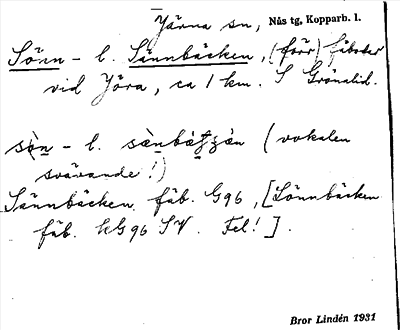 Järna sn, Nås tg, Kopparb. l.
Sönn - l. Sännbäcken, (förr) fäbodar
vid Jöra, ca 1 km. S Grönalid.
sὰn - l. sὰnbá
(vokalen
svävande!)
Sännbäcken fäb. G96, [Lönnbäcken
fäb. kG96 SV. Fel!].
Bror Lindén 1931